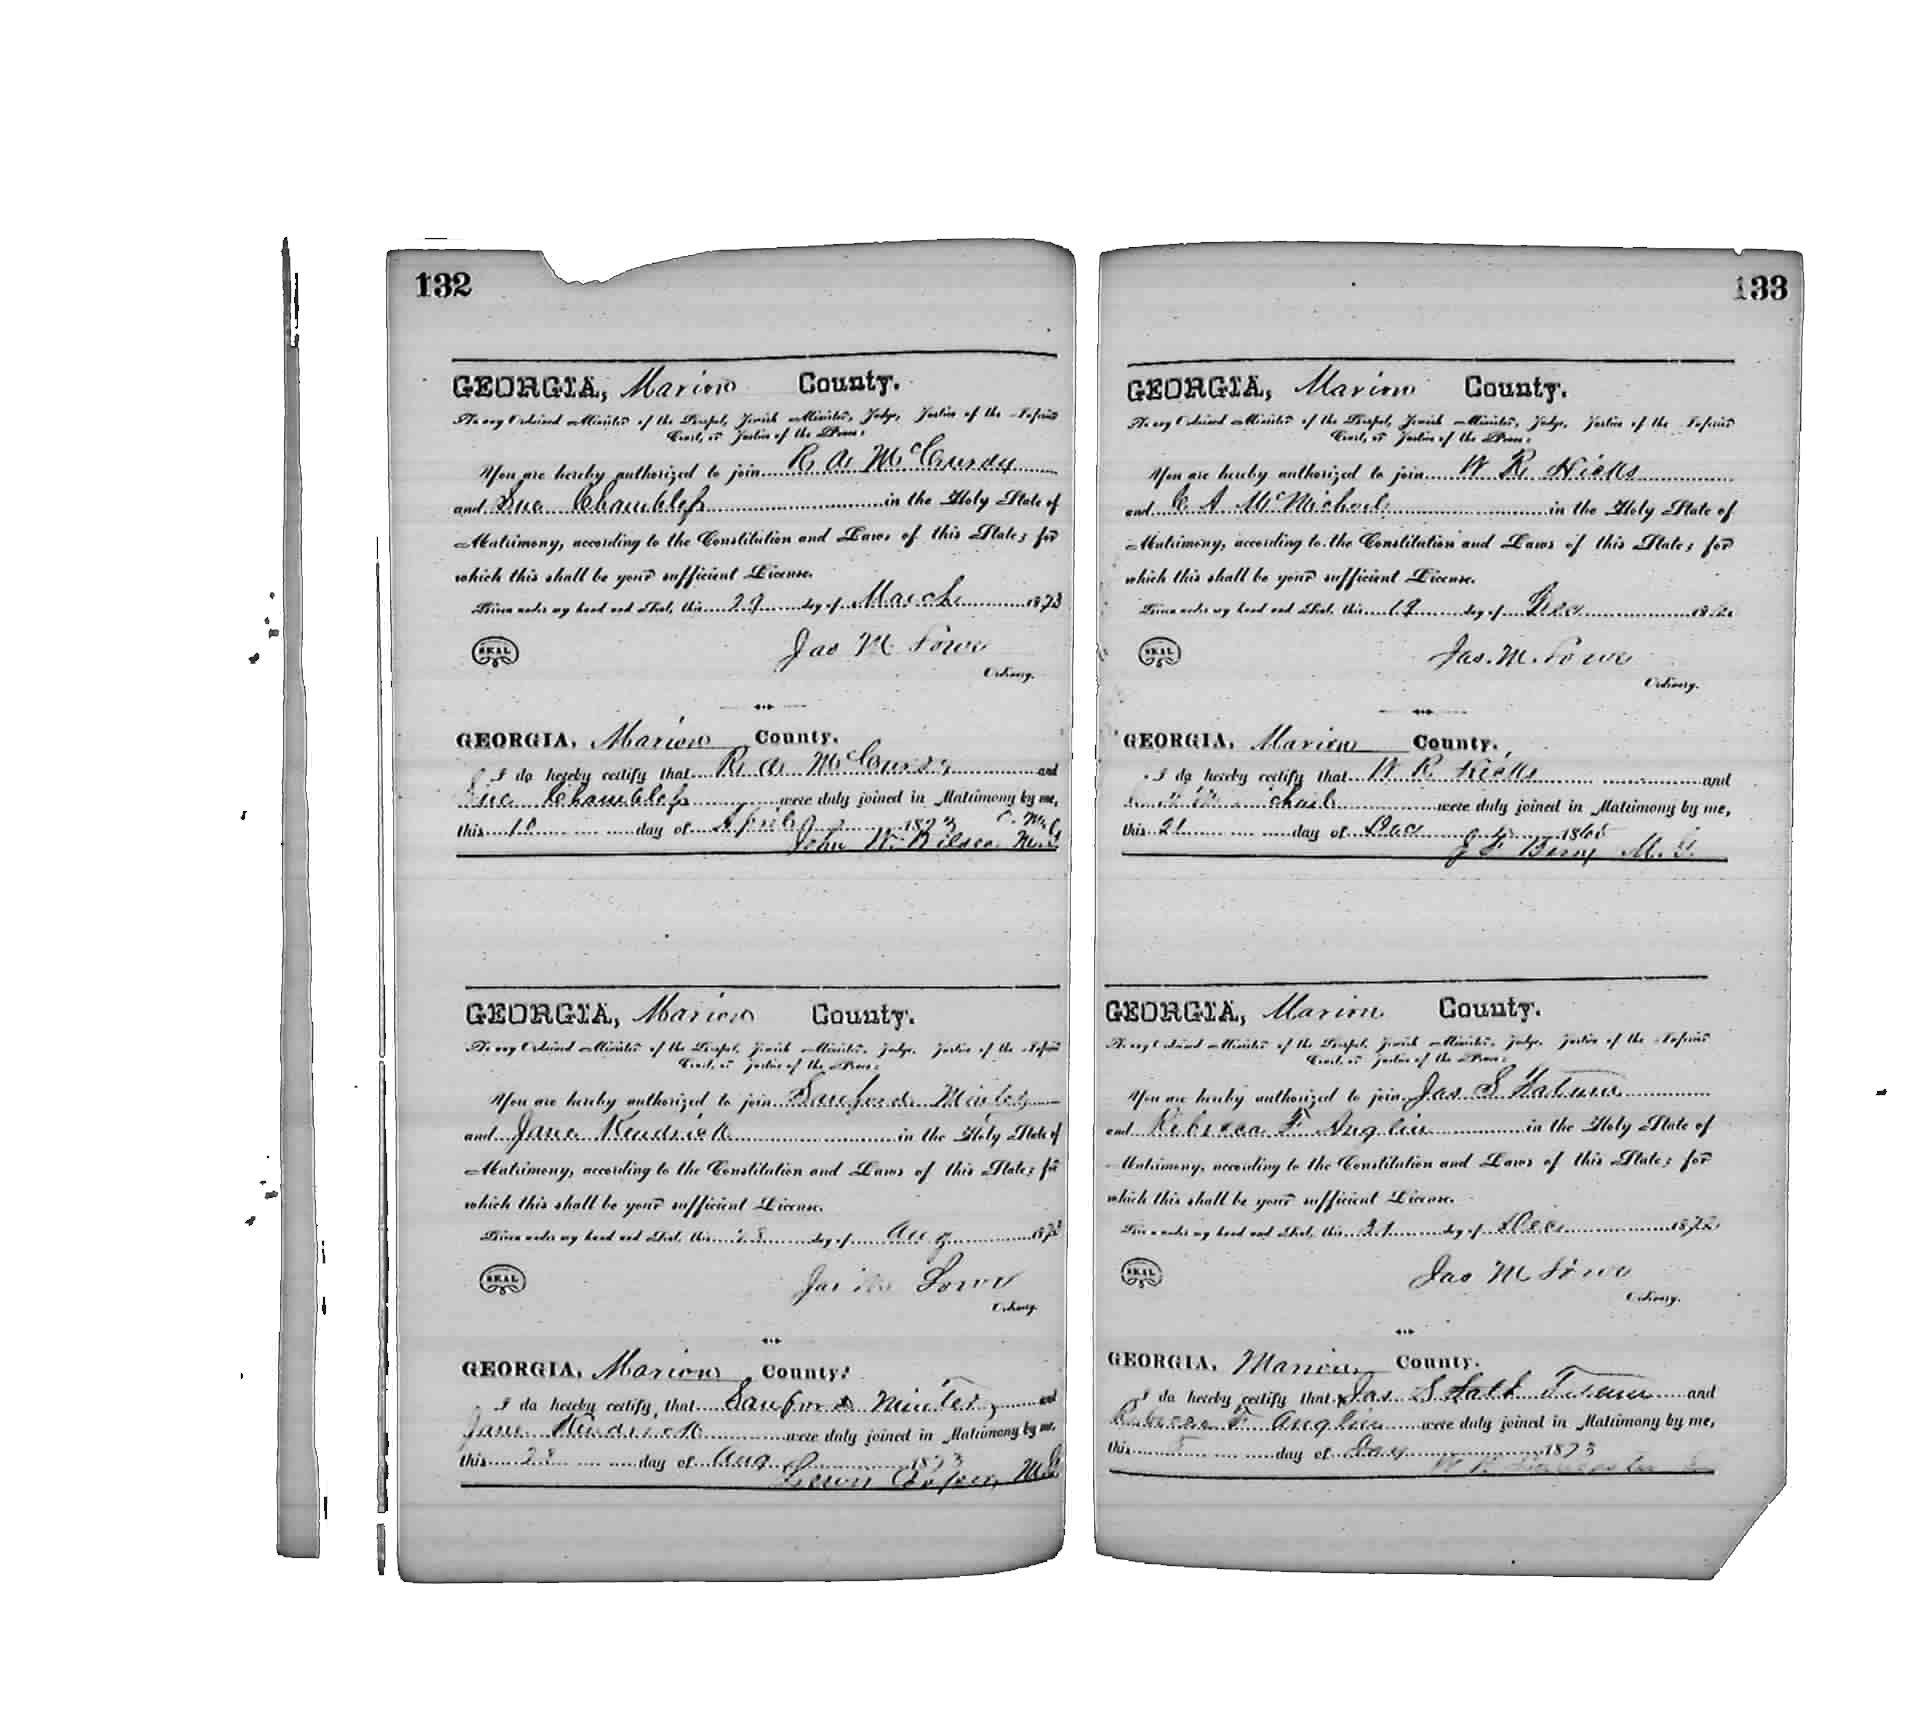 132
GEORGIA, Marion County.
To any Ordained Minister of the Gospel, Jewish Minister, Judge, Justice of the Inferior
Court, or Justice of the Peace:
You are hereby authorized to join R A McCurdy
and Sue Chambless in the Holy State of
Matrimony, according to the Constitution and Laws of this State; for
which this shall be your sufficient License.
Given under my hand and Seal, this 29 day of March 1873
SEAL
Jas M Lowe
Ordinary.
GEORGIA, Marion County.
I do hereby certify that R A McCurdy and
Sue Chambless were duly joined in Matrimony by me,
this 10 day of April 1873
John W. M.G
GEORGIA, Marion County.
To any Ordained Minister of the Gospel, Jewish Minister, Judge, Justice of the Inferior
Court, or Justice of the Peace:
You are hereby authorized to join Sanford Minter
and Jane Kendrick in the Holy State of
Matrimony, according to the Constitution and Laws of this State; for
which this shall be your sufficient License.
Given under my hand and Seal, this 28 day of Aug 1873
SEAL
Jas M Lowe
Ordinary.
GEORGIA, Marion County.
I do hereby certify that Sanford Minter and
Jane Kendrick were duly joined in Matrimony by me,
this 28 day of Aug 1873
M.G
133
GEORGIA, Marion County.
To any Ordained Minister of the Gospel, Jewish Minister, Judge, Justice of the Inferior
Court, or Justice of the Peace:
You are hereby authorized to join W R Hicks
and C A McMichael in the Holy State of
Matrimony, according to the Constitution and Laws of this State; for
which this shall be your sufficient License.
Given under my hand and Seal, this 19 day of Dec
SEAL
Jas. M. Lowe
Ordinary.
GEORGIA, Marion County.
I do hereby certify that W R Hicks and
were duly joined in Matrimony by me,
this 21 day of Dec
Berry M. G.
GEORGIA, Marion County.
To any Ordained Minister of the Gospel, Jewish Minister, Judge, Justice of the Inferior
Court, or Justice of the Peace:
You are hereby authorized to join Jas S Tatum
and Rebecca F Anglin in the Holy State of
Matrimony, according to the Constitution and Laws of this State; for
which this shall be your sufficient License.
Given under my hand and Seal, this 31 day of Dec 1872
SEAL
Jas M Lowe
Ordinary.
GEORGIA, Marion County.
I do hereby certify that Jas S and
Rebecca F Anglin were duly joined in Matrimony by me,
this day of 1873